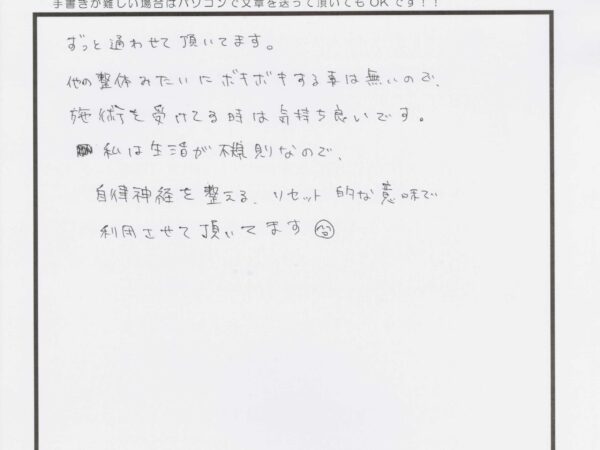 手書きが難しい場合はパソコンで文章を送って頂いてもOKです！！
ずっと通わせて頂いてます。
他の整体みたいにボキボキする事は無いので、
施術を受けてる時は気持ち良いです。
私は生活が不規則なので、
自律神経を整える、リセット的な意味で
利用させて頂いてます